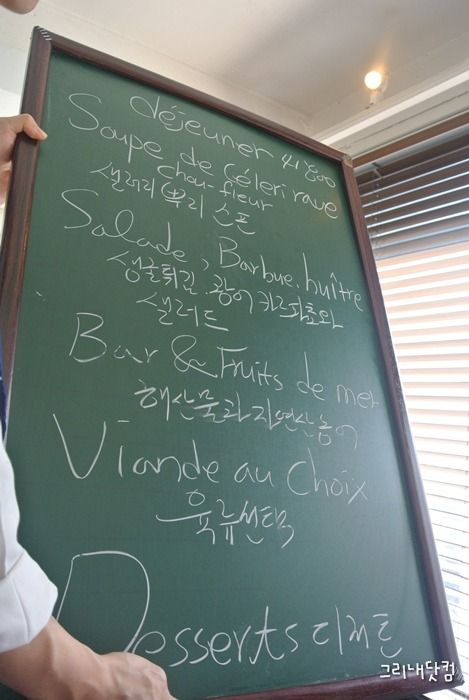 déjeuner 41800
Soupe de Céleri rave
chou-fleur
샐러리 뿌리 스픈
Salade, Barbue. huître
생굴튀김 광어 카르파쵸와
샐러드
Bar & Fruits de mer
해산물과 자연산 농어
Viande au Choix
육류선택
Desserts 디저트
그리내닷컴